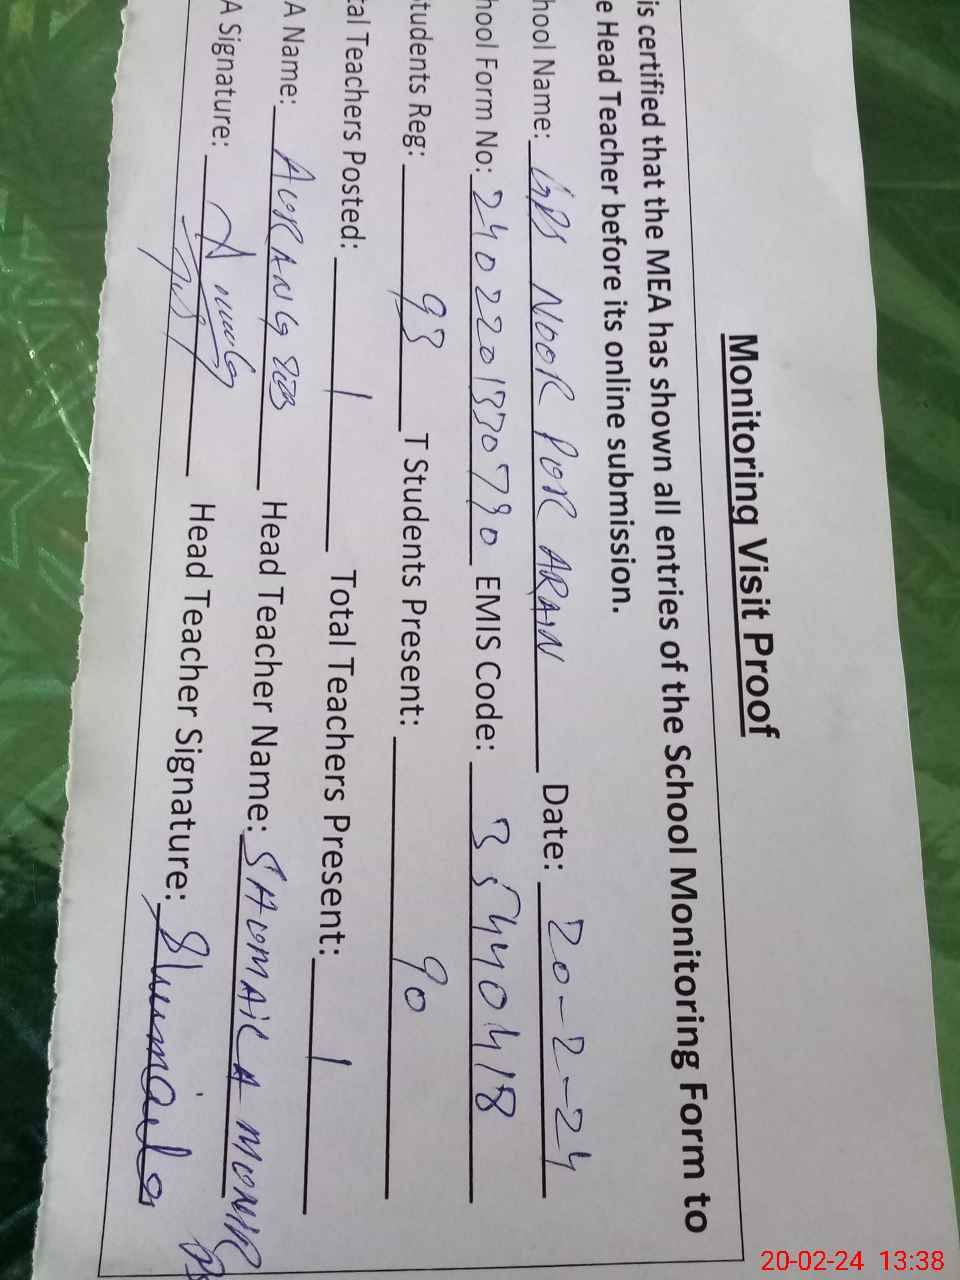 Monitoring Visit Proof
is certified that the MEA has shown all entries of the School Monitoring Form to
e Head Teacher before its online submission.
hool Name: GPS NOOR POR ARAIN Date: 20-2-24
hool Form No: 2402201330790 EMIS Code: 35440418
tudents Reg: 93 T Students Present: 90
tal Teachers Posted: 1 Total Teachers Present: 1
A Name: AURANG ZEB Head Teacher Name: SHUMAILA MUNIR
A Signature: Head Teacher Signature: Shumaila
20-02-24 13:38